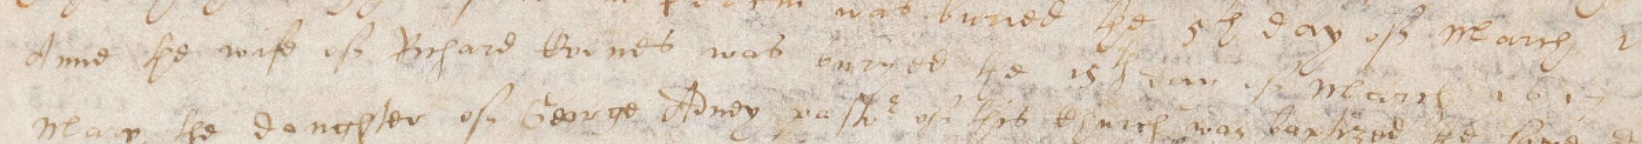 was buried the 5th day of March
Anne the wife of Richard was buryed the 15th day of March 1617
Mary the daughter of George Adney pastor of this Church was baptized the same